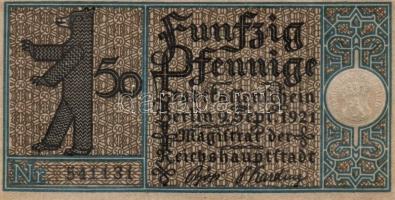 Funfzig
50 Pfennige
Stadtkassenschein
Berlin 9. Sept. 1921
Magistrat der
Reichshauptstadt
Nr. 541131